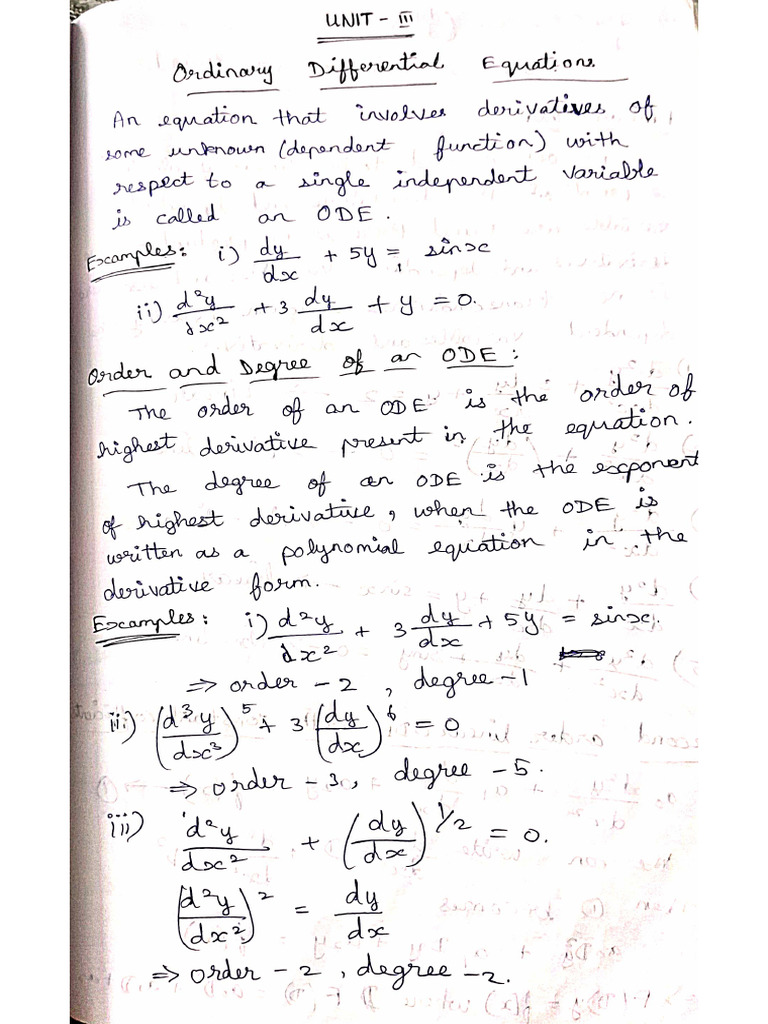 UNIT - III
Ordinary Differential Equations
An equation that involves derivatives of
some unknown (dependent function) with
respect to a single independent variable
is called an ODE.
Examples: i) dy/dx + 5y = sinx
ii) d²y/dx² + 3 dy/dx + y = 0.
Order and Degree of an ODE:
The order of an ODE is the order of
highest derivative present in the equation.
The degree of an ODE is the exponent
of highest derivative, when the ODE is
written as a polynomial equation in the
derivative form.
Examples: i) d²y/dx² + 3 dy/dx + 5y = sinx.
⇒ order - 2, degree - 1
ii) (d³y/dx³)⁵ + 3 (dy/dx)⁶ = 0
⇒ order - 3, degree - 5.
iii) d²y/dx² + (dy/dx)^1/2 = 0.
(d²y/dx²)² = dy/dx
⇒ order - 2, degree - 2.